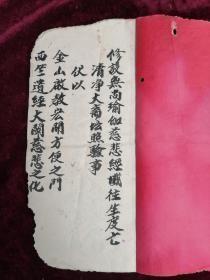 修設無尚瑜伽慈悲經懺往生度亡
清淨大齋坛照驗事
伏以
金山啟教宏開方便之門
西竺遺經大闡慈悲之化